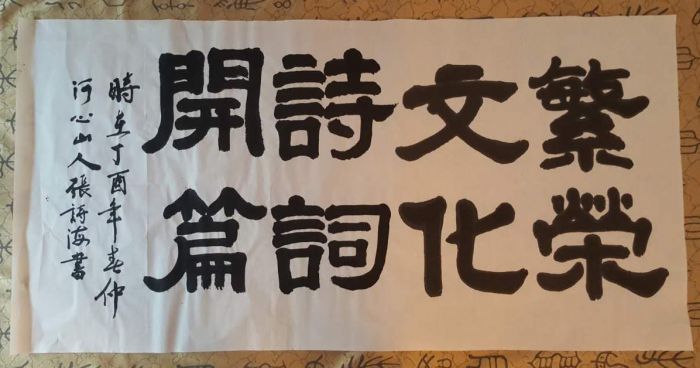 繁榮
文化
詩詞
開篇
時在丁酉年春仲
河心山人張詩海書